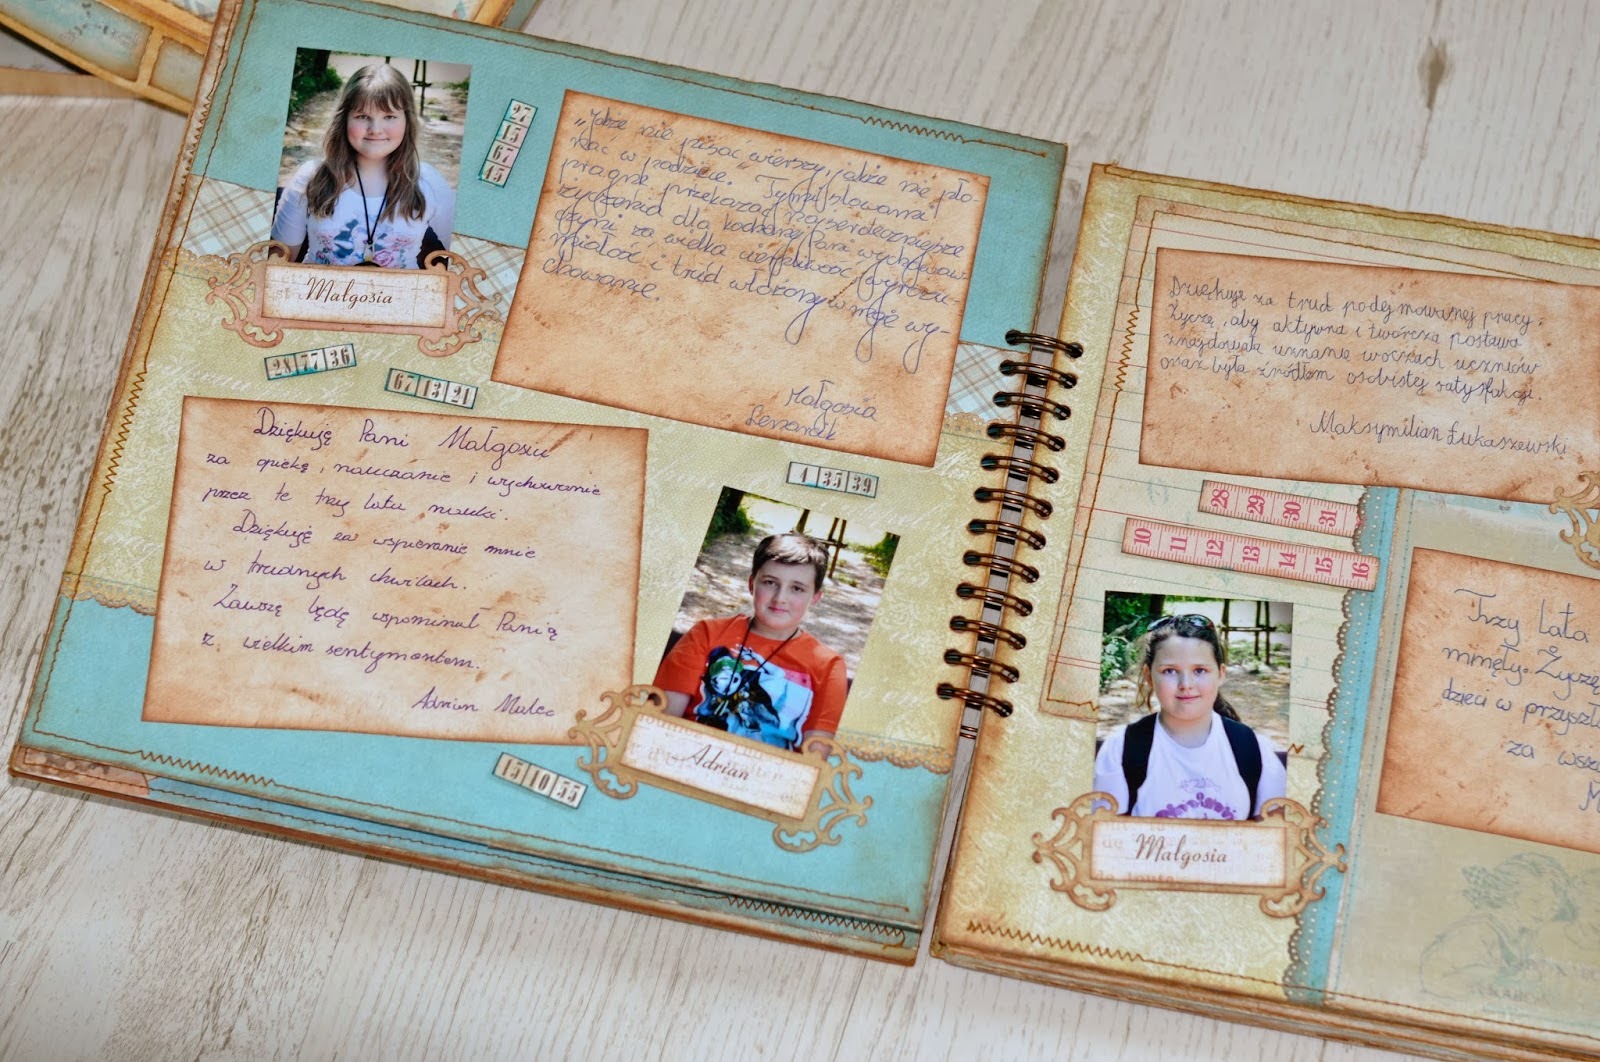 Małgosia
27 15 67 45
„Jakże nie pisać wierszy, jakże nie pła-
kać w podzięce." Tymi słowami
pragnę przekazać najserdeczniejsze
życzenia dla kochanej Pani wychowaw-
czyni za wielką cierpliwość, wyrozu-
miałość i trud włożony w moje wy-
chowanie.
Małgosia
28 77 36
67 13 21
Dziękuję Pani Małgosiu
za opiekę, nauczanie i wychowanie
przez te trzy lata nauki.
Dziękuję za wspieranie mnie
w trudnych chwilach.
Zawszę będę wspominał Panią
z wielkim sentymentem.
Adrian
4 35 39
Adrian
15 10 55
Dziękuję za trud podejmowanej pracy.
Życzę, aby aktywna i twórcza postawa
znajdowała uznanie w oczach uczniów
oraz była źródłem osobistej satysfakcji.
Maksymilian Łukaszewski
28 29 30 31
10 11 12 13 14 15 16
Małgosia
Trzy lata
minęły. Życzę
dzieci w przyszł
za wsz
M